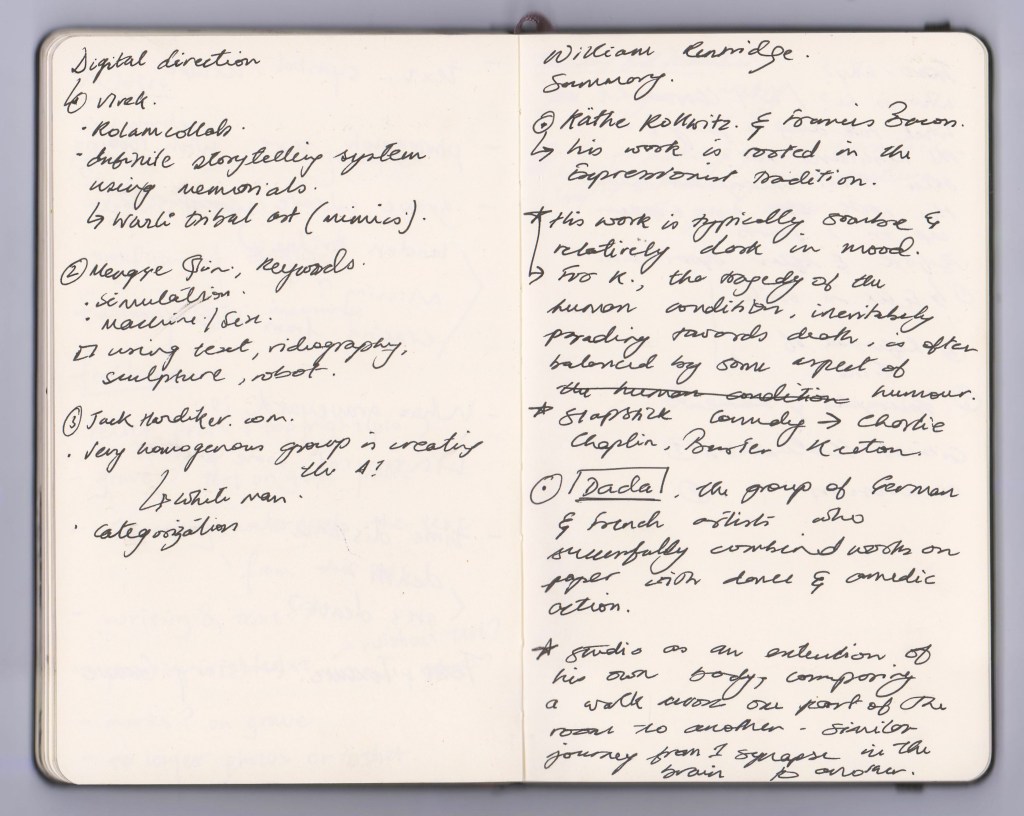 Digital direction
↳ ① Vivek.
· Rolamcollab.
· Infinite storytelling system
using memorials.
↳ Warli tribal art (mimics).
② Mengye, Keywords.
· simulation.
· machine / Sex.
□ using text, videography,
sculpture, robot.
③ Jack Hardiker. com.
· Very homogenous group is creating
the A?
↳ white man.
· categorization
William Kentridge.
Summary.
⊙ Käthe Kollwitz. & Francis Bacon.
↳ his work is rooted in the
Expressionist tradition.
* His work is typically sombre &
relatively dark in mood.
→ For K., the tragedy of the
human condition, inevitabely
parading towards death, is often
balanced by some aspect of
the human condition humour.
* slapstick comedy → Charlie
Chaplin, Buster Keaton.
⊙ Dada, the group of German
& French artists who
successfully combined works on
paper with dance & comedic
action.
* studio as an extention of
his own body, comparing
a walk from one part of the
room to another - similar
journey from 1 synapse in the
brain to another.